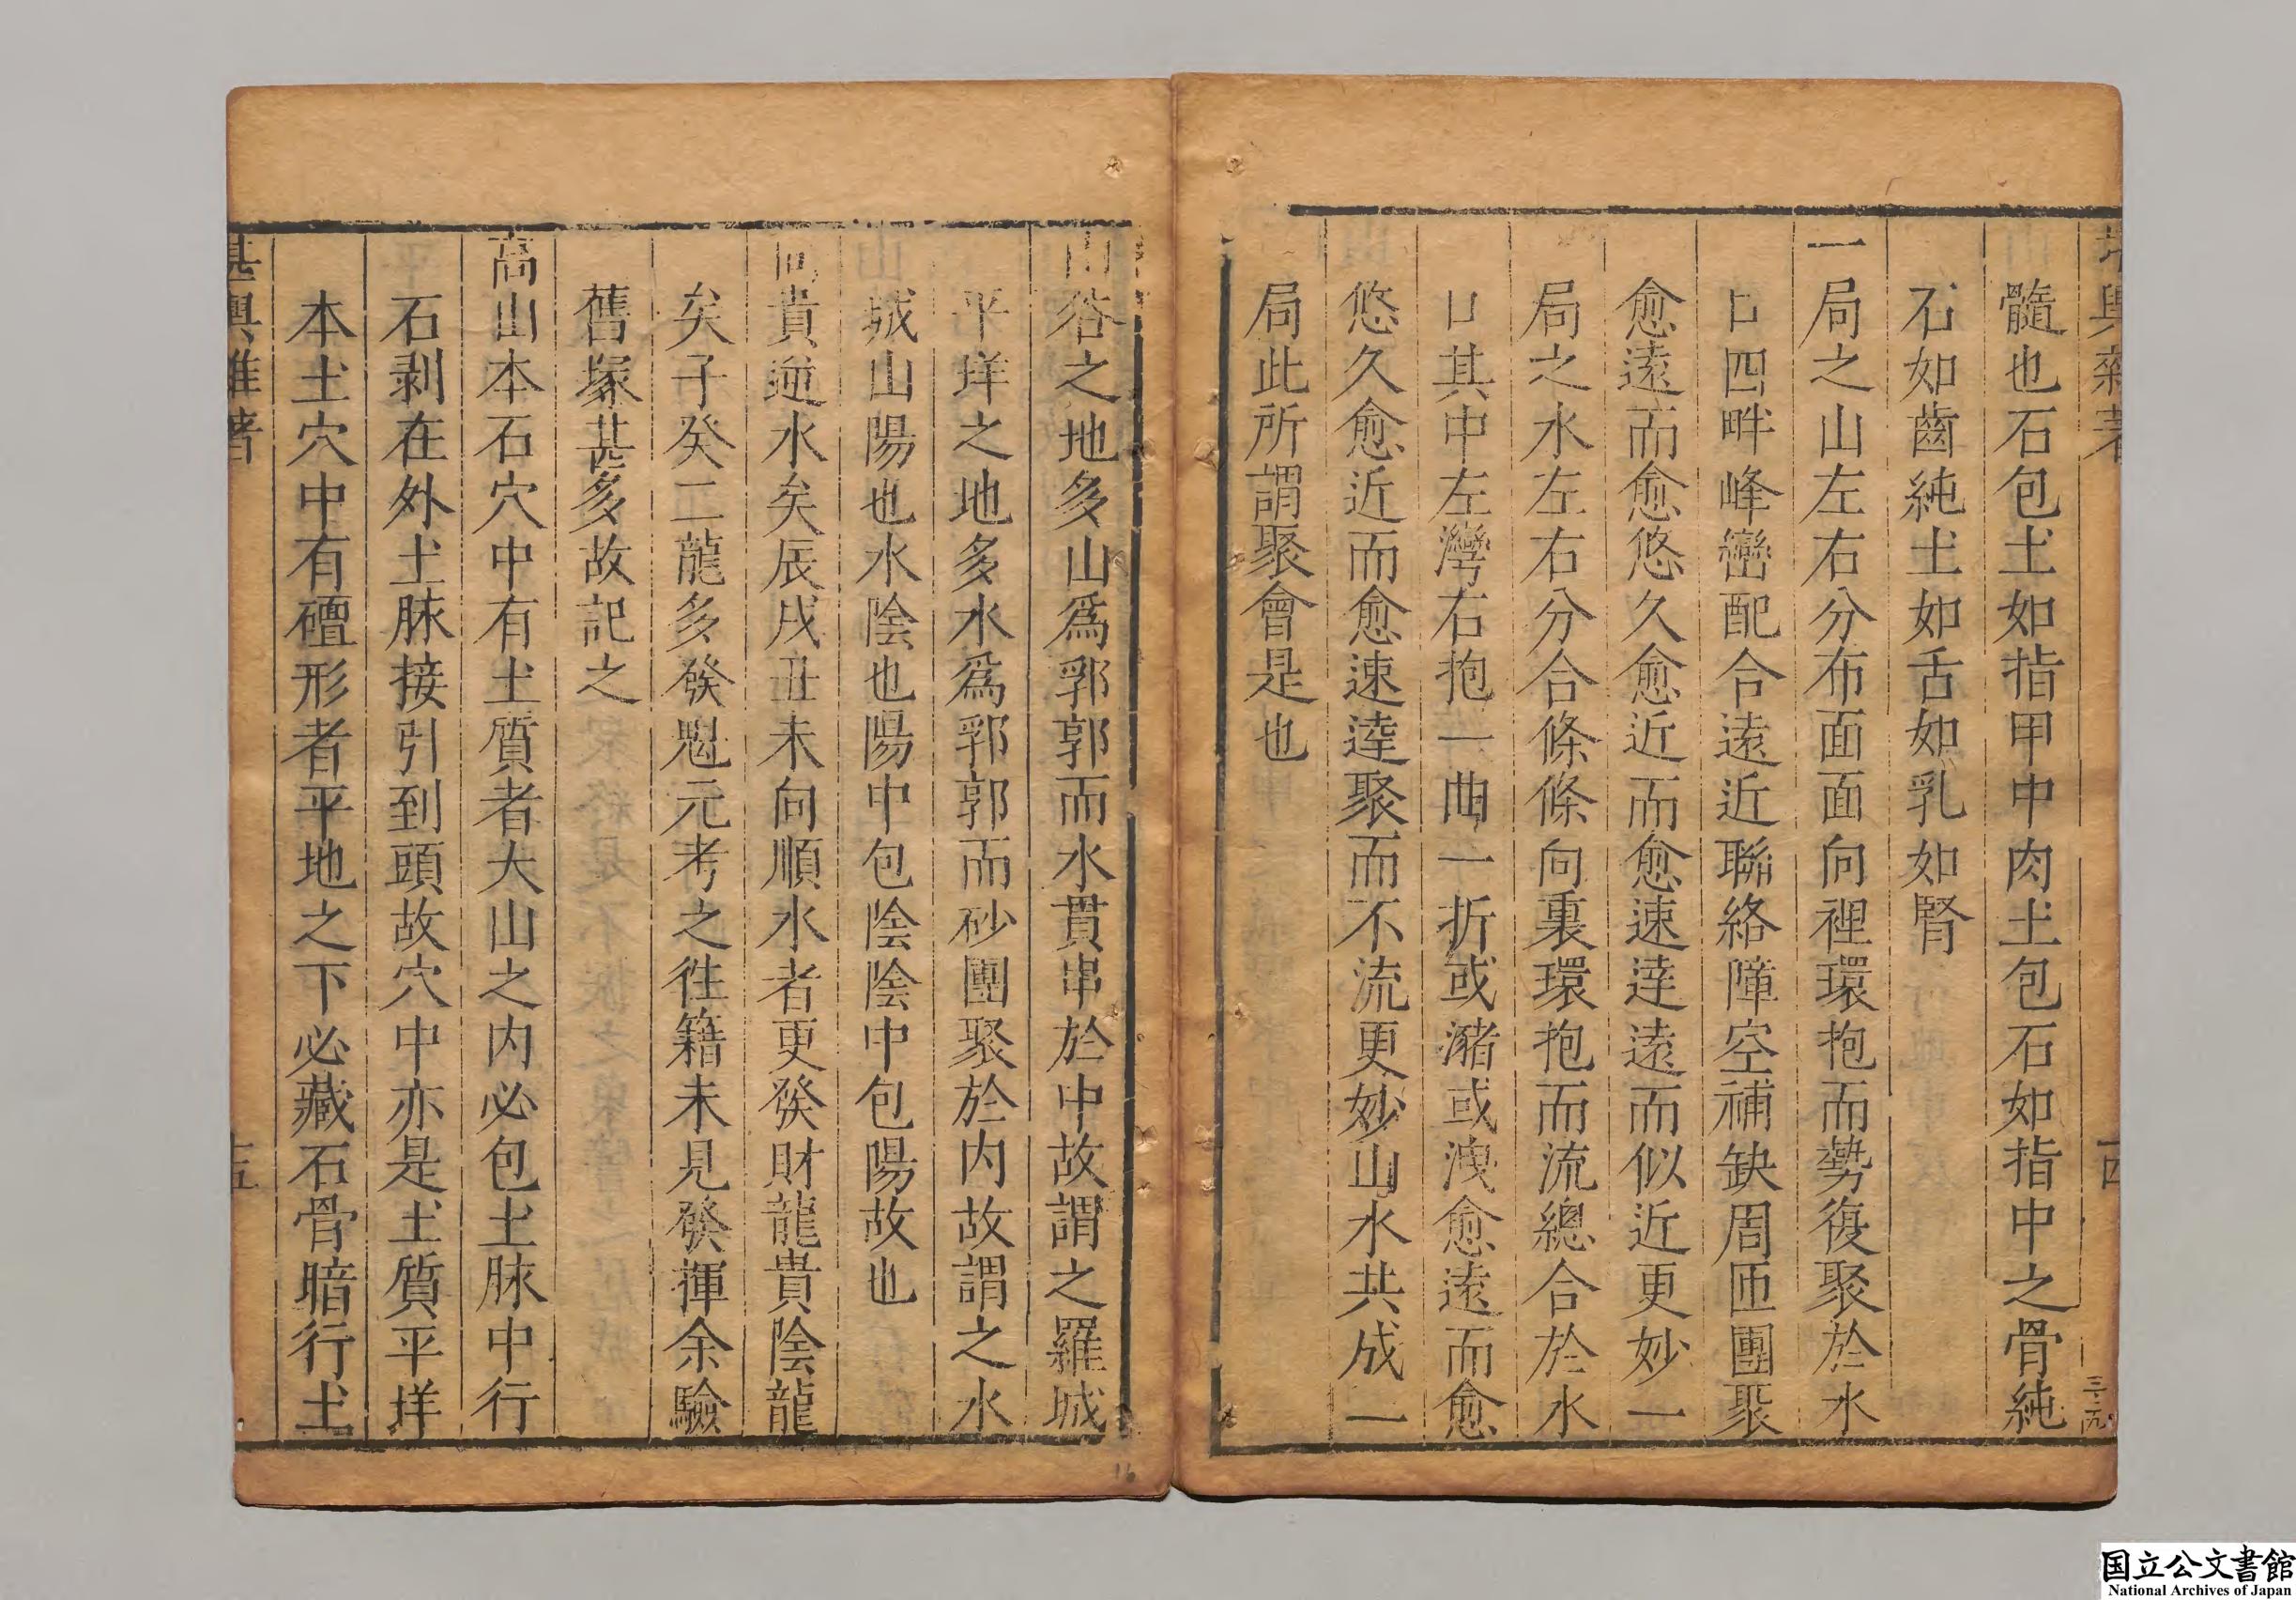 堪輿雜著
髓也石包土如指甲中肉土包石如指中之骨純
石如齒純土如舌如乳如腎
一局之山左右分布面面向裡環抱而勢復聚於水
口四畔峰巒配合遠近聯絡障空補缺周匝團聚
愈遠而愈悠久愈近而愈速達遠而似近更妙一
局之水左右分合條條向裏環抱而流總合於水
口其中左灣右抱一曲一折或瀦或洩愈遠而愈
悠久愈近而愈速達聚而不流更妙山水共成一
局此所謂聚會是也
山谷之地多山爲郛郭而水貫串於中故謂之羅城
平垟之地多水爲郛郭而砂團聚於内故謂之水
城山陽也水陰也陽中包陰陰中包陽故也
向貴逆水矣辰戌丑未向順水者更發財龍貴陰龍
矣子癸二龍多發魁元考之徃籍未見發揮余驗
舊塚甚多故記之
高山本石穴中有土質者大山之内必包土脉中行
石剥在外土脉接引到頭故穴中亦是土質平垟
本土穴中有礓形者平地之下必藏石骨暗行土
堪輿雜著
十五
国立公文書館
National Archives of Japan